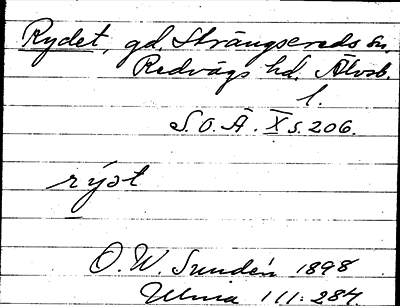 Rydet, gd. Strängsereds sn,
Redvägs hd. Älvsb.
l.
S.O.Ä. X s. 206.
rýət
O. W. Sundén 1898
Ulma 111:284.